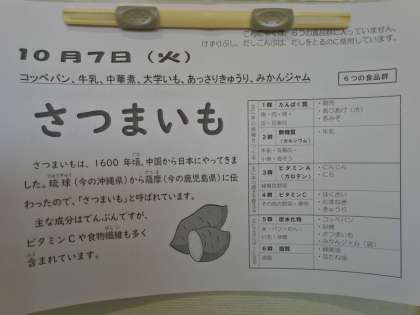 こんにゃくは、6つの食品群に入っていません。
けずりぶし、だしこんぶは、だしをとるのに使用しています。
10月7日（火）
コッペパン、牛乳、中華煮、大学いも、あっさりきゅうり、みかんジャム
6つの食品群
さつまいも
さつまいもは、1600年頃、中国から日本にやってきま
した。琉球（今の沖縄県）から薩摩（今の鹿児島県）に伝
わったので、「さつまいも」と呼ばれています。
主な成分はでんぷんですが、
ビタミンCや食物繊維も多く
含まれています。
1群 たんぱく質
2群 無機質
(カルシウム)
・牛乳
3群 ビタミンA
(カロテン)
・にんじん
・にら
緑黄色野菜
4群 ビタミンC
その他の野菜・果物
・はくさい
・たまねぎ
・きゅうり
5群 炭水化物
・コッペパン
・砂糖
・さつまいも
・みかんジャム（袋）
6群 脂質